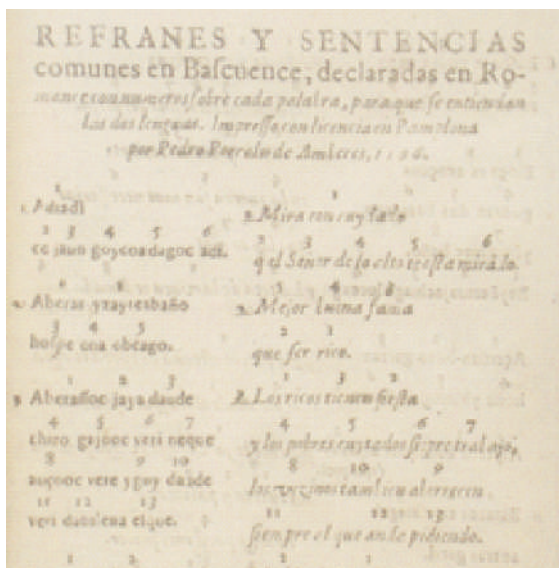 REFRANES Y SENTENCIAS
comunes en Baſcuence, declaradas en Ro-
mance con numeros ſobre cada palabra, para que ſe entiendan
las dos lenguas. Impreſſo con licencia en Pamplona
por Pedro de Amberes, 1596.
1
1. Adiadi
2 3 4 5 6
ce jaun goycoa dagoc adi.
2. Aberas yzaytesbaño
3 4 5
hoſpe ona obeago.
1 2 3
3 Aberaſſoc jaya daude
4 5 6 7
chiro gajooc veti neque
8 9 10
auçooc vere yguy daude
11 12 13
veti dabilena eſque.
1 2
1
2. Mira con cuydado
2 3 4 5 6
q el Señor de lo alto te eſta mirādo.
2. Mejor buena fama
2 1
que ſer rico.
1 3 2
3. Los ricos tienen fieſta
4 5 6 7
y los pobres cuytados ſiēpre trabajo,
8 10 9
los vezinos tambien aborrecen
11 12 13
ſiempre el que anda pidiendo.
2 1